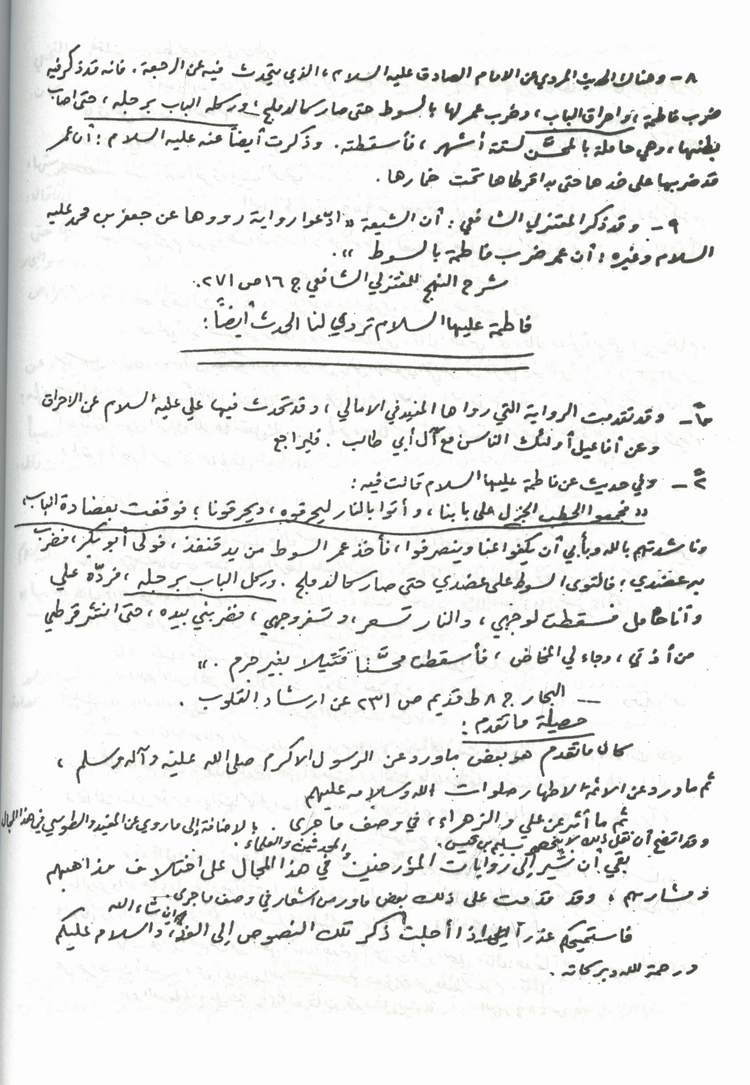 ٨ - وهناك الحديث المروي عن الامام الصادق عليه السلام، الذي يتحدث فيه عن الرجعة. فانه قد ذكر فيه
ضرب فاطمة، واحراق الباب، وضرب عمر لها بالسوط حتى صار كالدملج، وركله الباب برجله، حتى أصاب
بطنها، وهي حاملة بالمحسن لستة أشهر، فأسقطته. وذكرت أيضاً عنه عليه السلام: أن عمر
قد ضربها على خدها حتى بدا قرطاها تحت خمارها.
٩ - وقد ذكر المعتزلي الشافعي: أن الشيعة «ادّعوا رواية رووها عن جعفر بن محمد عليه
السلام وغيره: أن عمر ضرب فاطمة بالسوط».
شرح النهج للمعتزلي الشافعي ج ١٦ ص ٢٧١.
فاطمة عليها السلام تروي لنا الحدث أيضاً:
١ - وقد تقدمت الرواية التي رواها المفيد في الامالي، وقد تحدث فيها علي عليه السلام عن الاحراق
وعن أفاعيل أولئك الناس مع آل أبي طالب. فليراجع
٢ - وفي حديث عن فاطمة عليها السلام قالت فيه:
«فجمعوا الحطب الجزل على بابنا، وأتوا بالنار ليحرقوه، ويحرقونا، فوقفت بعضادة الباب،
وناشدتهم بالله وبأبي أن يكفوا عنا وينصرفوا، فأخذ عمر السوط من يد قنفذ، مولى أبو بكر، فضرب
به عضدي، فالتوى السوط على عضدي حتى صار كالدملج. وركل الباب برجله، فردّه علي
وأنا حامل فسقطت لوجهي، والنار تسعر، وتسفع وجهي، فضربني بيده، حتى انتثر قرطي
من أذني، وجاءني المخاض، فأسقطت محسّناً قتيلا بغير جرم.»
ــ البحار ج ٨ ط قديم ص ٢٣١ عن ارشاد القلوب.
حصيلة ما تقدم:
كان ما تقدم هو بعض ما ورد عن الرسول الاكرم صلى الله عليه وآله وسلم،
ثم ما ورد عن الائمة الاطهار صلوات الله وسلامه عليهم
ثم ما أثر عن علي والزهراء، في وصف ما جرى. بالاضافة إلى ما روي عن المفيد والطوسي في هذا المجال
وقد اتضح أن نقل ذلك لا ينحصر بسليم بن قيس.
بقي أن نشير إلى روايات المؤرخين والمحدثين والعلماء في هذا المجال على اختلاف مذاهبهم
ومشاربهم، وقد قدمت على ذلك بعض ما ورد من أشعار في وصف ما جرى.
فاستميحكم عذراً إذا أجلت ذكر تلك النصوص إلى الغد إن شاء الله، والسلام عليكم
ورحمة الله وبركاته.